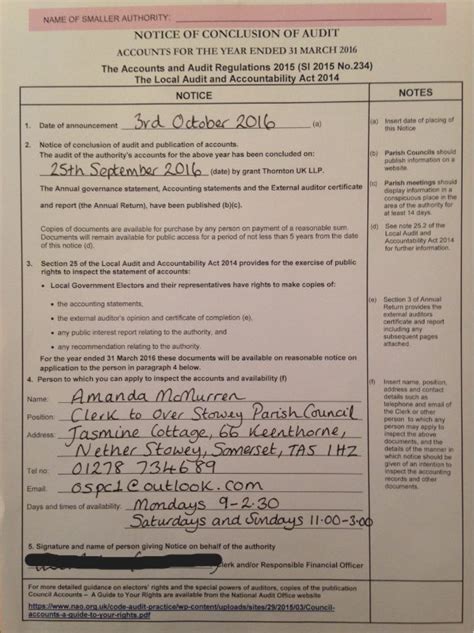 NAME OF SMALLER AUTHORITY:
NOTICE OF CONCLUSION OF AUDIT
ACCOUNTS FOR THE YEAR ENDED 31 MARCH 2016
The Accounts and Audit Regulations 2015 (SI 2015 No.234)
The Local Audit and Accountability Act 2014
NOTICE
NOTES
1. Date of announcement 3rd October 2016 (a)
(a) Insert date of placing of
this Notice
2. Notice of conclusion of audit and publication of accounts.
The audit of the authority's accounts for the above year has been concluded on:
25th September 2016 (date) by grant Thornton UK LLP.
The Annual governance statement, Accounting statements and the External auditor certificate
and report (the Annual Return), have been published (b)(c).
Copies of documents are available for purchase by any person on payment of a reasonable sum.
Documents will remain available for public access for a period of not less than 5 years from the date
of this notice (d).
(b) Parish Councils should
publish information on a
website.
(c) Parish meetings should
display information in a
conspicuous place in the
area of the authority for
at least 14 days.
(d) See note 25.2 of the
Local Audit and
Accountability Act 2014
for further information.
3. Section 25 of the Local Audit and Accountability Act 2014 provides for the exercise of public
rights to inspect the statement of accounts:
• Local Government Electors and their representatives have rights to make copies of:
• the accounting statements,
• the external auditor's opinion and certificate of completion (e),
• any public interest report relating to the authority, and
• any recommendation relating to the authority.
For the year ended 31 March 2016 these documents will be available on reasonable notice on
application to the person in paragraph 4 below.
(e) Section 3 of Annual
Return provides the
external auditors
certificate and report
including any
subsequent pages
attached.
4. Person to which you can apply to inspect the accounts and availability (f)
Name: Amanda McMurren
Position: Clerk to Over Stowey Parish Council
Address: Jasmine Cottage, 66 Keenthorne,
Nether Stowey, Somerset, TA5 1HZ
Tel no: 01278 734689
Email: ospc1@outlook.com
Days and times of availability: Mondays 9-2.30
Saturdays and Sundays 11.00-3.00
(f) Insert name, position,
address and contact
details such as
telephone and email of
the Clerk or other
person to which any
person may apply to
inspect the above
documents, and the
details of the manner in
which notice should be
given of an intention to
inspect the accounting
records and other
documents.
5. Signature and name of person giving Notice on behalf of the authority
Clerk and/or Responsible Financial Officer
For more detailed guidance on electors' rights and the special powers of auditors, copies of the publication
Council Accounts – A Guide to Your Rights are available from the National Audit Office website
https://www.nao.org.uk/code-audit-practice/wp-content/uploads/sites/29/2015/03/Council-
accounts-a-guide-to-your-rights.pdf